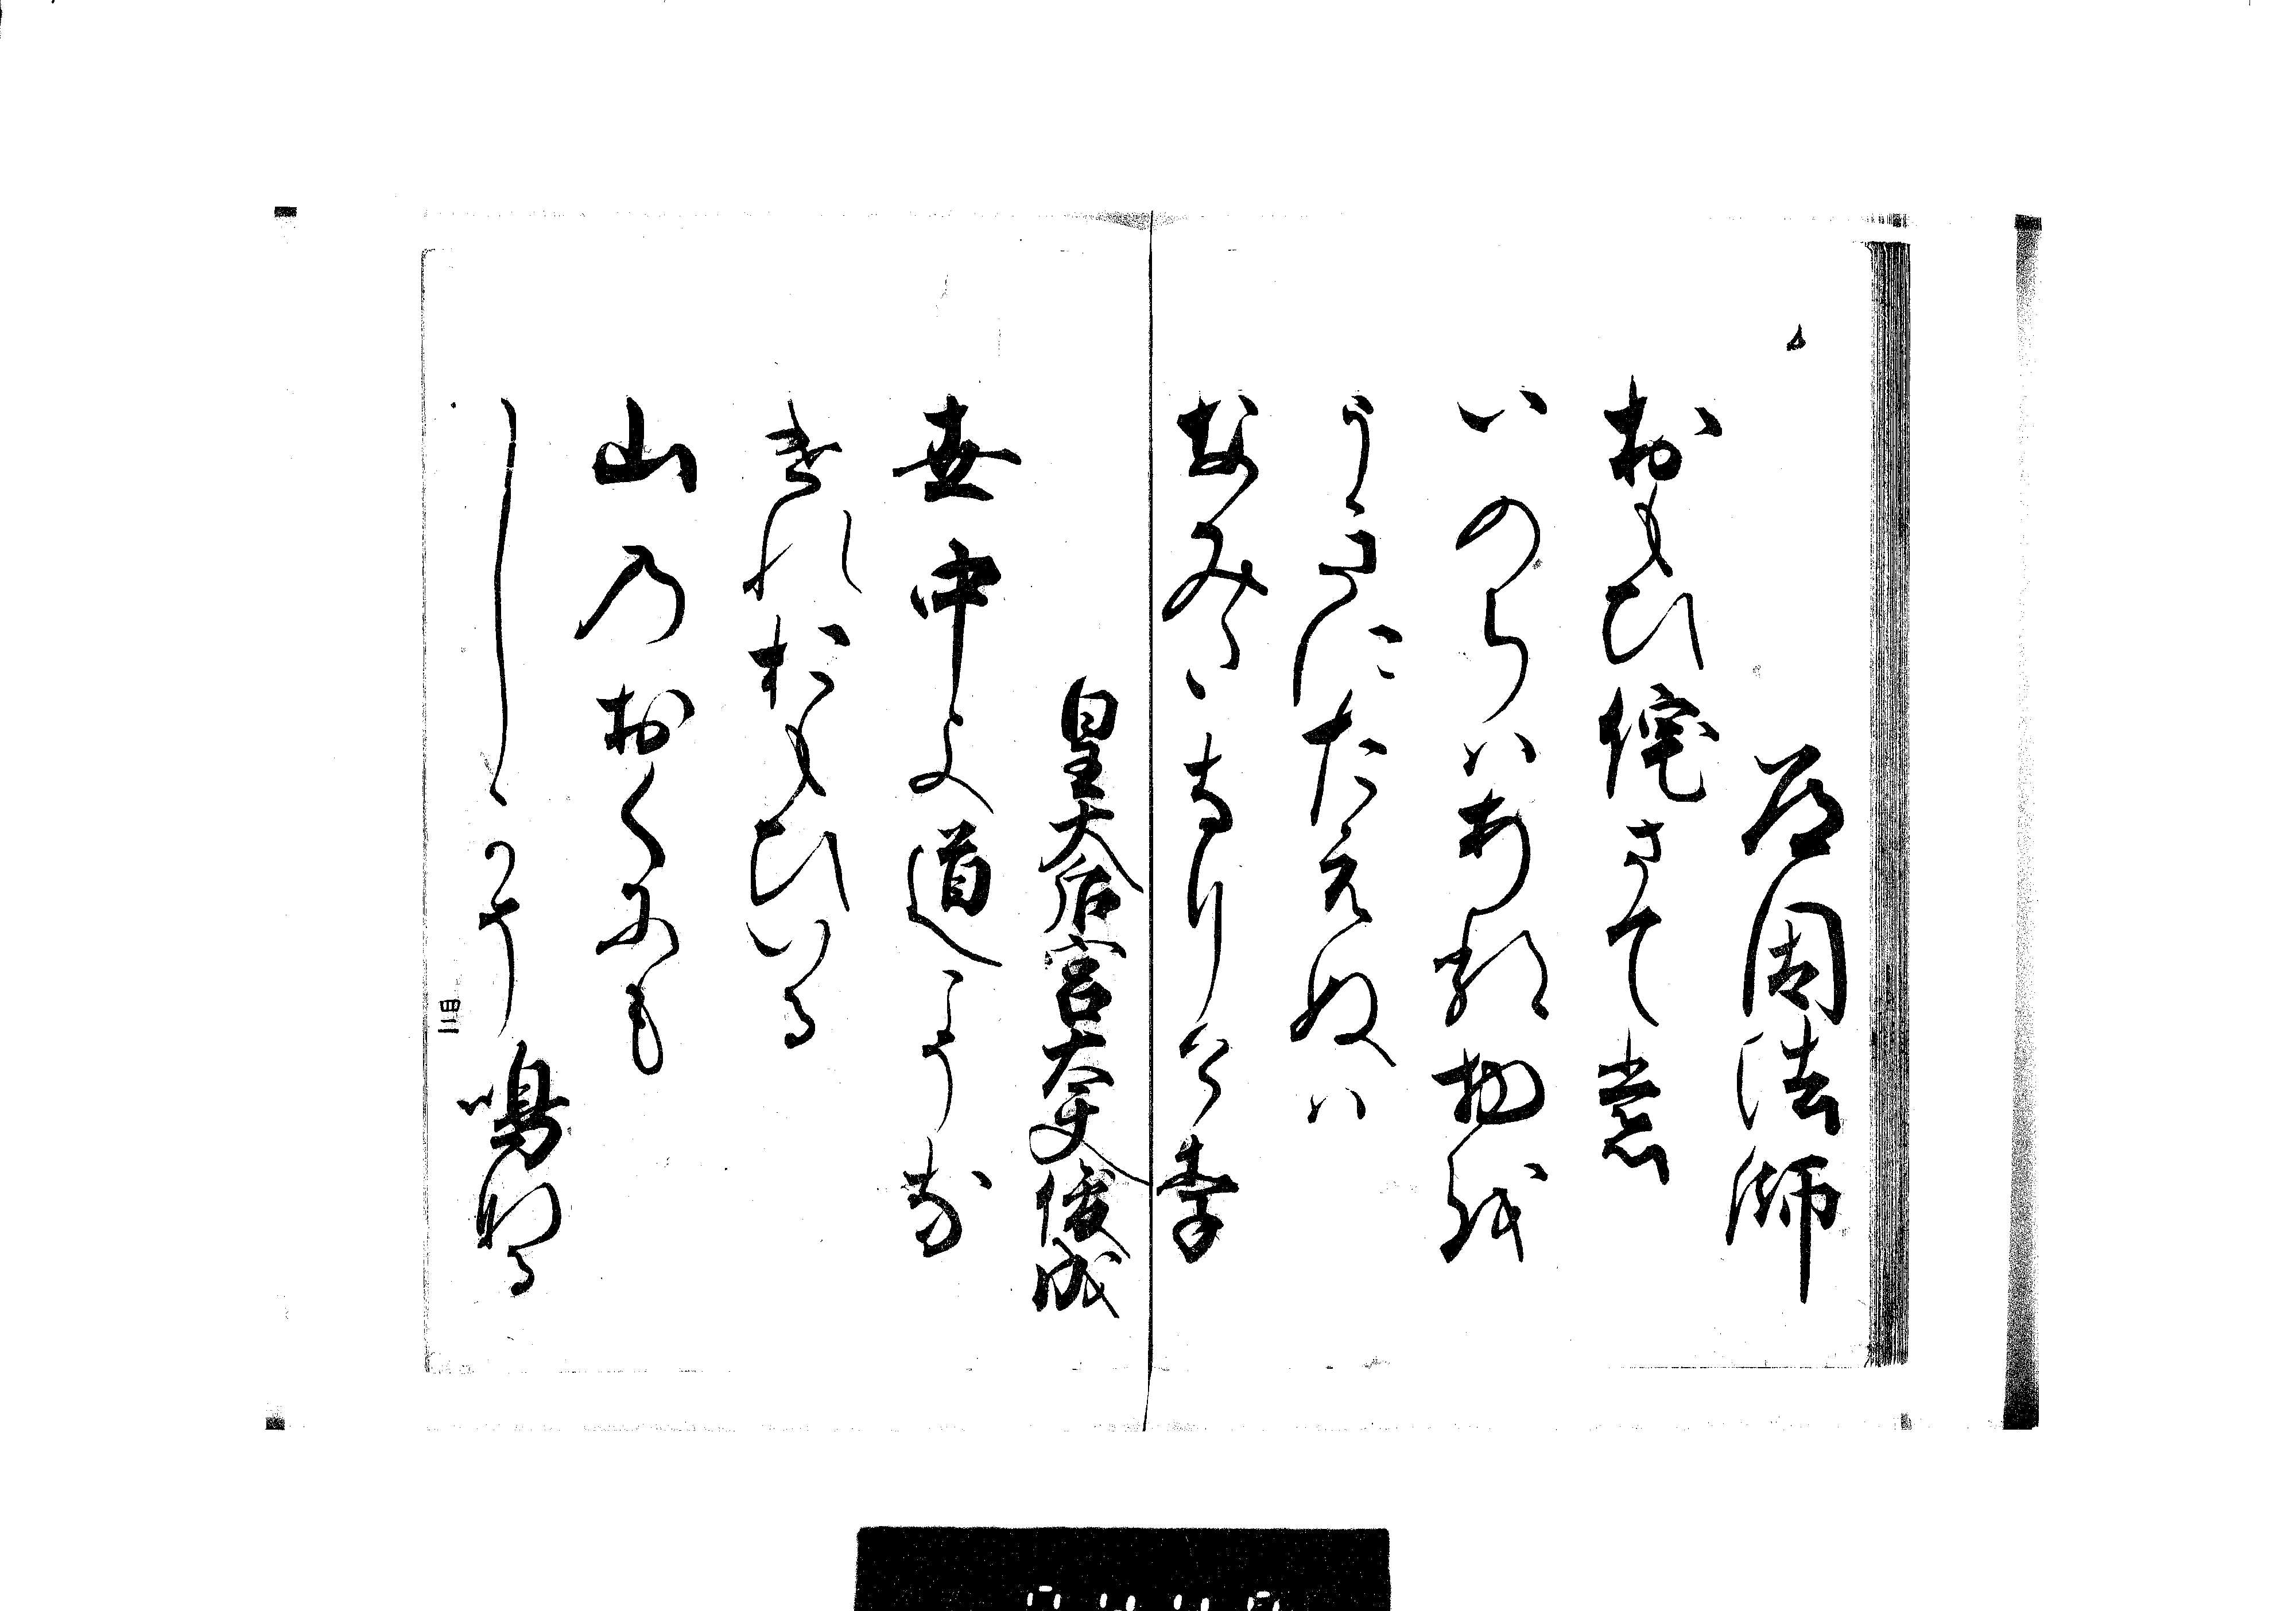 道因法師
おもひ侘さても
いのちはある物を
うきにたえぬは
なみたなりけり
皇太后宮大夫俊成
世中よ道こそな
けれおもひいる
山乃おくにも
しかそ鳴なる
四二